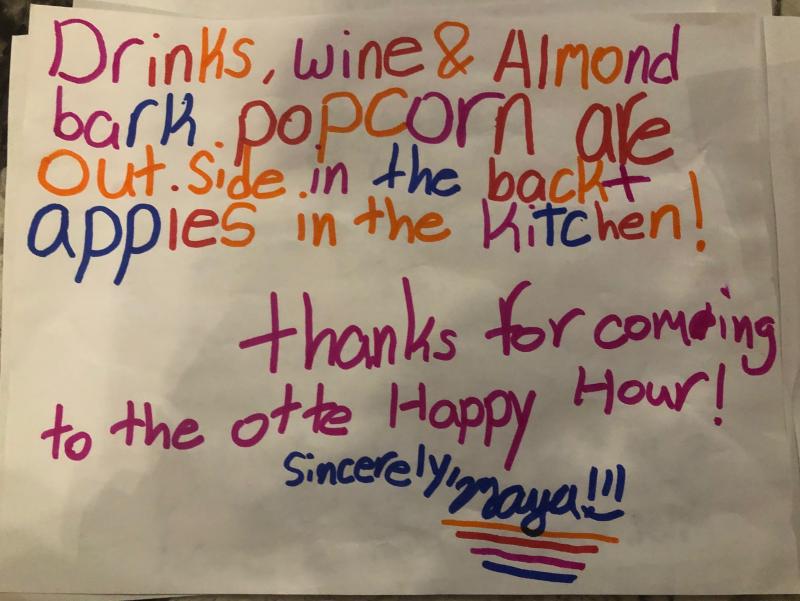 Drinks, wine & Almond
bark popcorn are
out.side.in the back+
appies in the kitchen!
thanks for coming
to the otte Happy Hour!
Sincerely, Maya!!!